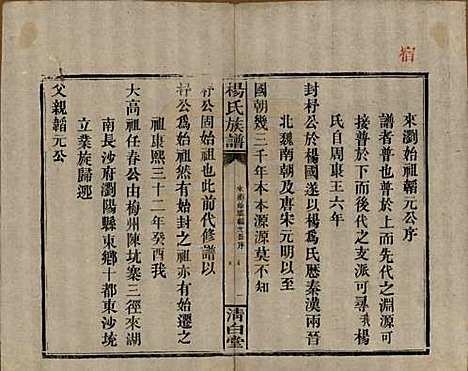 來瀏始祖韜元公序
譜者普也普於上而先代之淵源可
接普於下而後代之支派可尋然楊
氏自周康王六年
封杼公於楊國遂以楊爲氏歷秦漢兩晉
北魏南朝及唐宋元明以至
國朝幾三千年木本源源莫不知
楊氏族譜
清白堂
杼公固始祖也此前代修譜以
杼公爲始祖然有始封之祖亦有始遷之
祖康熙三十二年癸酉我
大高祖任春公由梅州陳坑寨三徑來湖
南長沙府瀏陽縣東鄉十都東沙坑
立業旋歸迎
父親韜元公